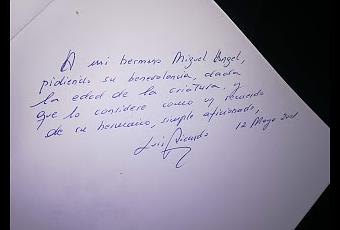 A mi hermano Miguel Angel,
pidiendo su benevolencia, dada
la edad de la criatura, y
que lo considere como un recuerdo
de su hermano, simple aficionado,
Luis Ricardo 12 Mayo